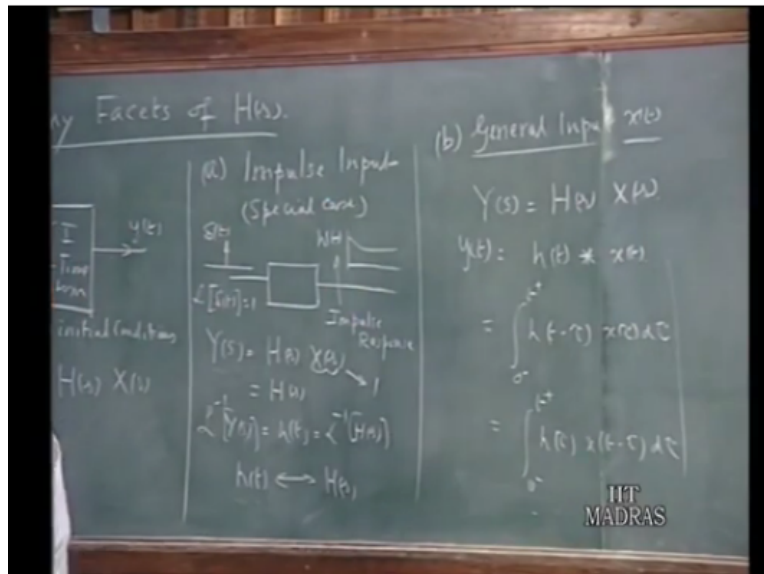 ny Facets of H(s).
I
-Time
tem
y(t)
initial Conditions
H(s) X(s)
(a) Impulse Input
(Special Case)
δ(t)
h(t)
L[δ(t)]=1
Impulse
Response
Y(s) = H(s) X(s)
1
= H(s)
L⁻¹[Y(s)] = h(t) = L⁻¹[H(s)]
h(t) ⟷ H(s)
(b) General Input x(t)
Y(s) = H(s) X(s)
y(t) = h(t) * x(t)
= ∫₀₋ᵗ⁺ h(t-τ) x(τ) dτ
= ∫₀₋ᵗ⁺ h(τ) x(t-τ) dτ
IIT
MADRAS